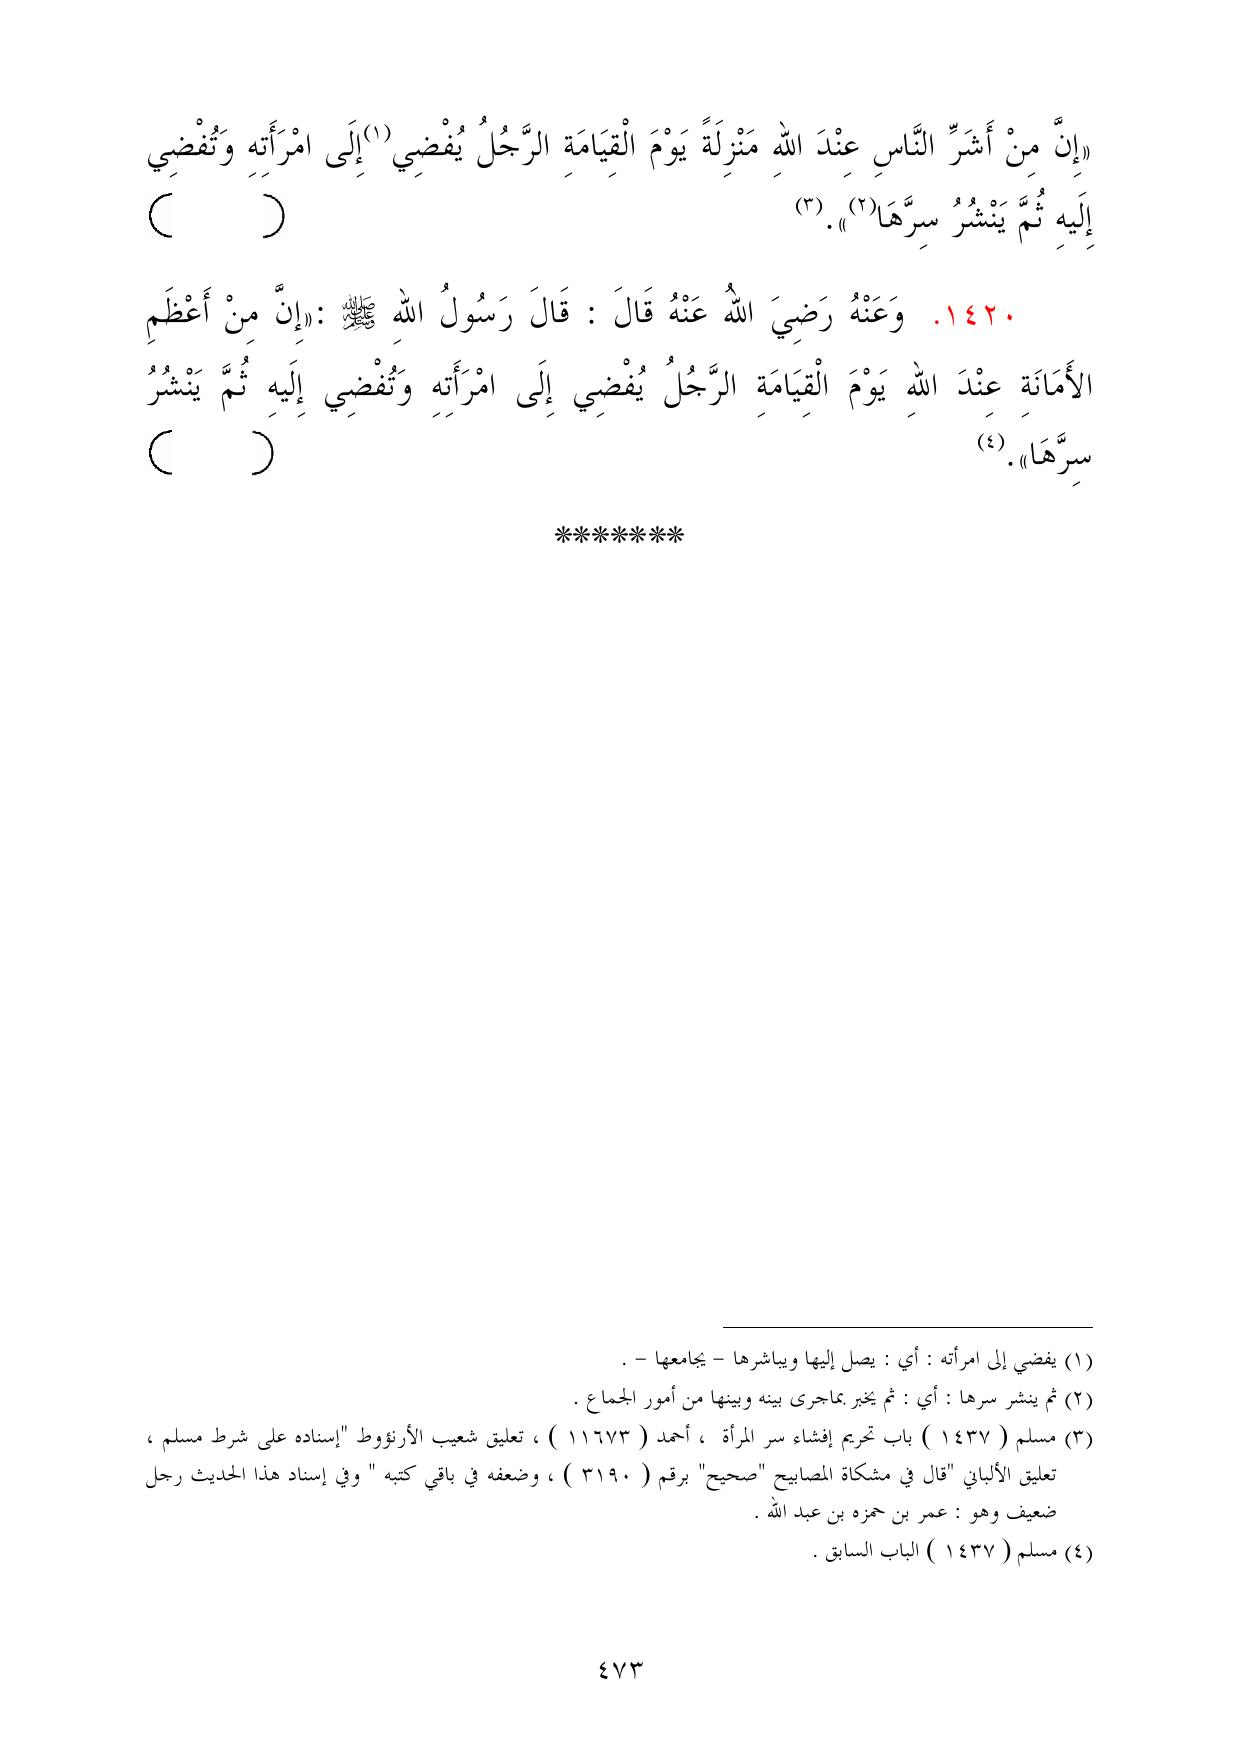 «إِنَّ مِنْ أَشَرِّ النَّاسِ عِنْدَ اللهِ مَنْزِلَةً يَوْمَ الْقِيَامَةِ الرَّجُلُ يُفْضِي(١)إِلَى امْرَأَتِهِ وَتُفْضِي
إِلَيهِ ثُمَّ يَنْشُرُ سِرَّهَا(٢)».(٣) ( )
١٤٢٠. وَعَنْهُ رَضِيَ اللهُ عَنْهُ قَالَ : قَالَ رَسُولُ اللهِ ﷺ :«إِنَّ مِنْ أَعْظَمِ
الأَمَانَةِ عِنْدَ اللهِ يَوْمَ الْقِيَامَةِ الرَّجُلُ يُفْضِي إِلَى امْرَأَتِهِ وَتُفْضِي إِلَيهِ ثُمَّ يَنْشُرُ
سِرَّهَا».(٤) ( )
*******
(١) يفضي إلى امرأته : أي : يصل إليها ويباشرها – يجامعها – .
(٢) ثم ينشر سرها : أي : ثم يخبر بماجرى بينه وبينها من أمور الجماع .
(٣) مسلم ( ١٤٣٧ ) باب تحريم إفشاء سر المرأة ، أحمد ( ١١٦٧٣ ) ، تعليق شعيب الأرنؤوط "إسناده على شرط مسلم ،
تعليق الألباني "قال في مشكاة المصابيح "صحيح" برقم ( ٣١٩٠ ) ، وضعفه في باقي كتبه " وفي إسناد هذا الحديث رجل
ضعيف وهو : عمر بن حمزه بن عبد الله .
(٤) مسلم ( ١٤٣٧ ) الباب السابق .
٤٧٣